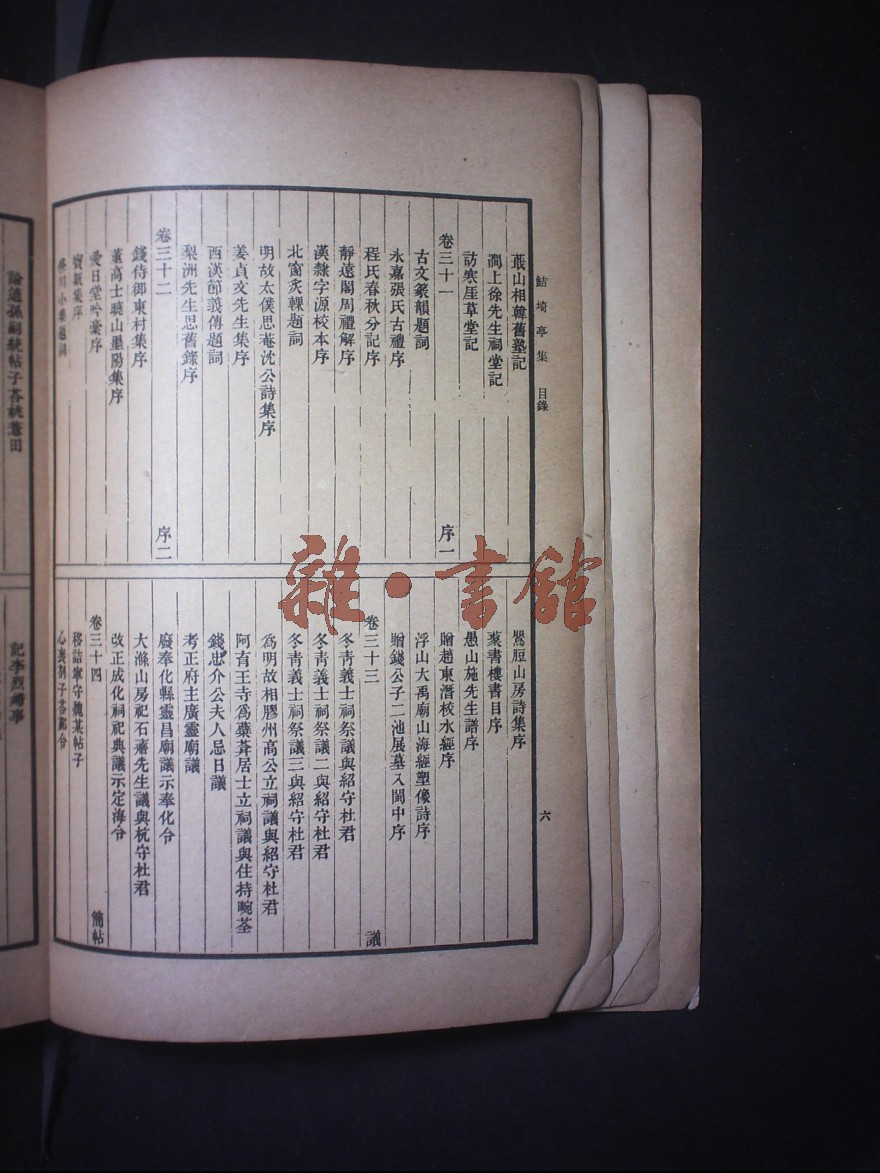 鮚埼亭集　目錄
六
蕺山相韓舊塾記
澗上徐先生祠堂記
訪寒厓草堂記
卷三十一　序一
古文篆韻題詞
永嘉張氏古禮序
程氏春秋分記序
靜遠閣周禮解序
漢隸字源校本序
北窗炙輠題詞
明故太僕思菴沈公詩集序
姜貞文先生集序
西漢節義傳題詞
梨洲先生思舊錄序
卷三十二　序二
錢侍御東村集序
董高士曉山墨陽集序
愛日堂吟稾序
寶甈集序
小集題詞
鷽脰山房詩集序
叢書樓書目序
愚山施先生譜序
贈趙東潛校水經序
浮山大禹廟山海經塑像詩序
贈錢公子二池展墓入閩中序
卷三十三　議
冬青義士祠祭議與紹守杜君
冬青義士祠祭議二與紹守杜君
冬青義士祠祭議三與紹守杜君
爲明故相膠州高公立祠議與紹守杜君
阿育王寺爲蘖菴居士立祠議與住持畹荃
錢忠介公夫人忌日議
考正府主廣靈廟議
廢奉化縣靈昌廟議示奉化令
大滌山房祀石齋先生議與杭守杜君
改正成化祠祀典議示定海令
卷三十四　簡帖
移詰寧守魏某帖子
心喪劄子答鄞令
論適孫嗣統帖子答姚薏田
雜·書館